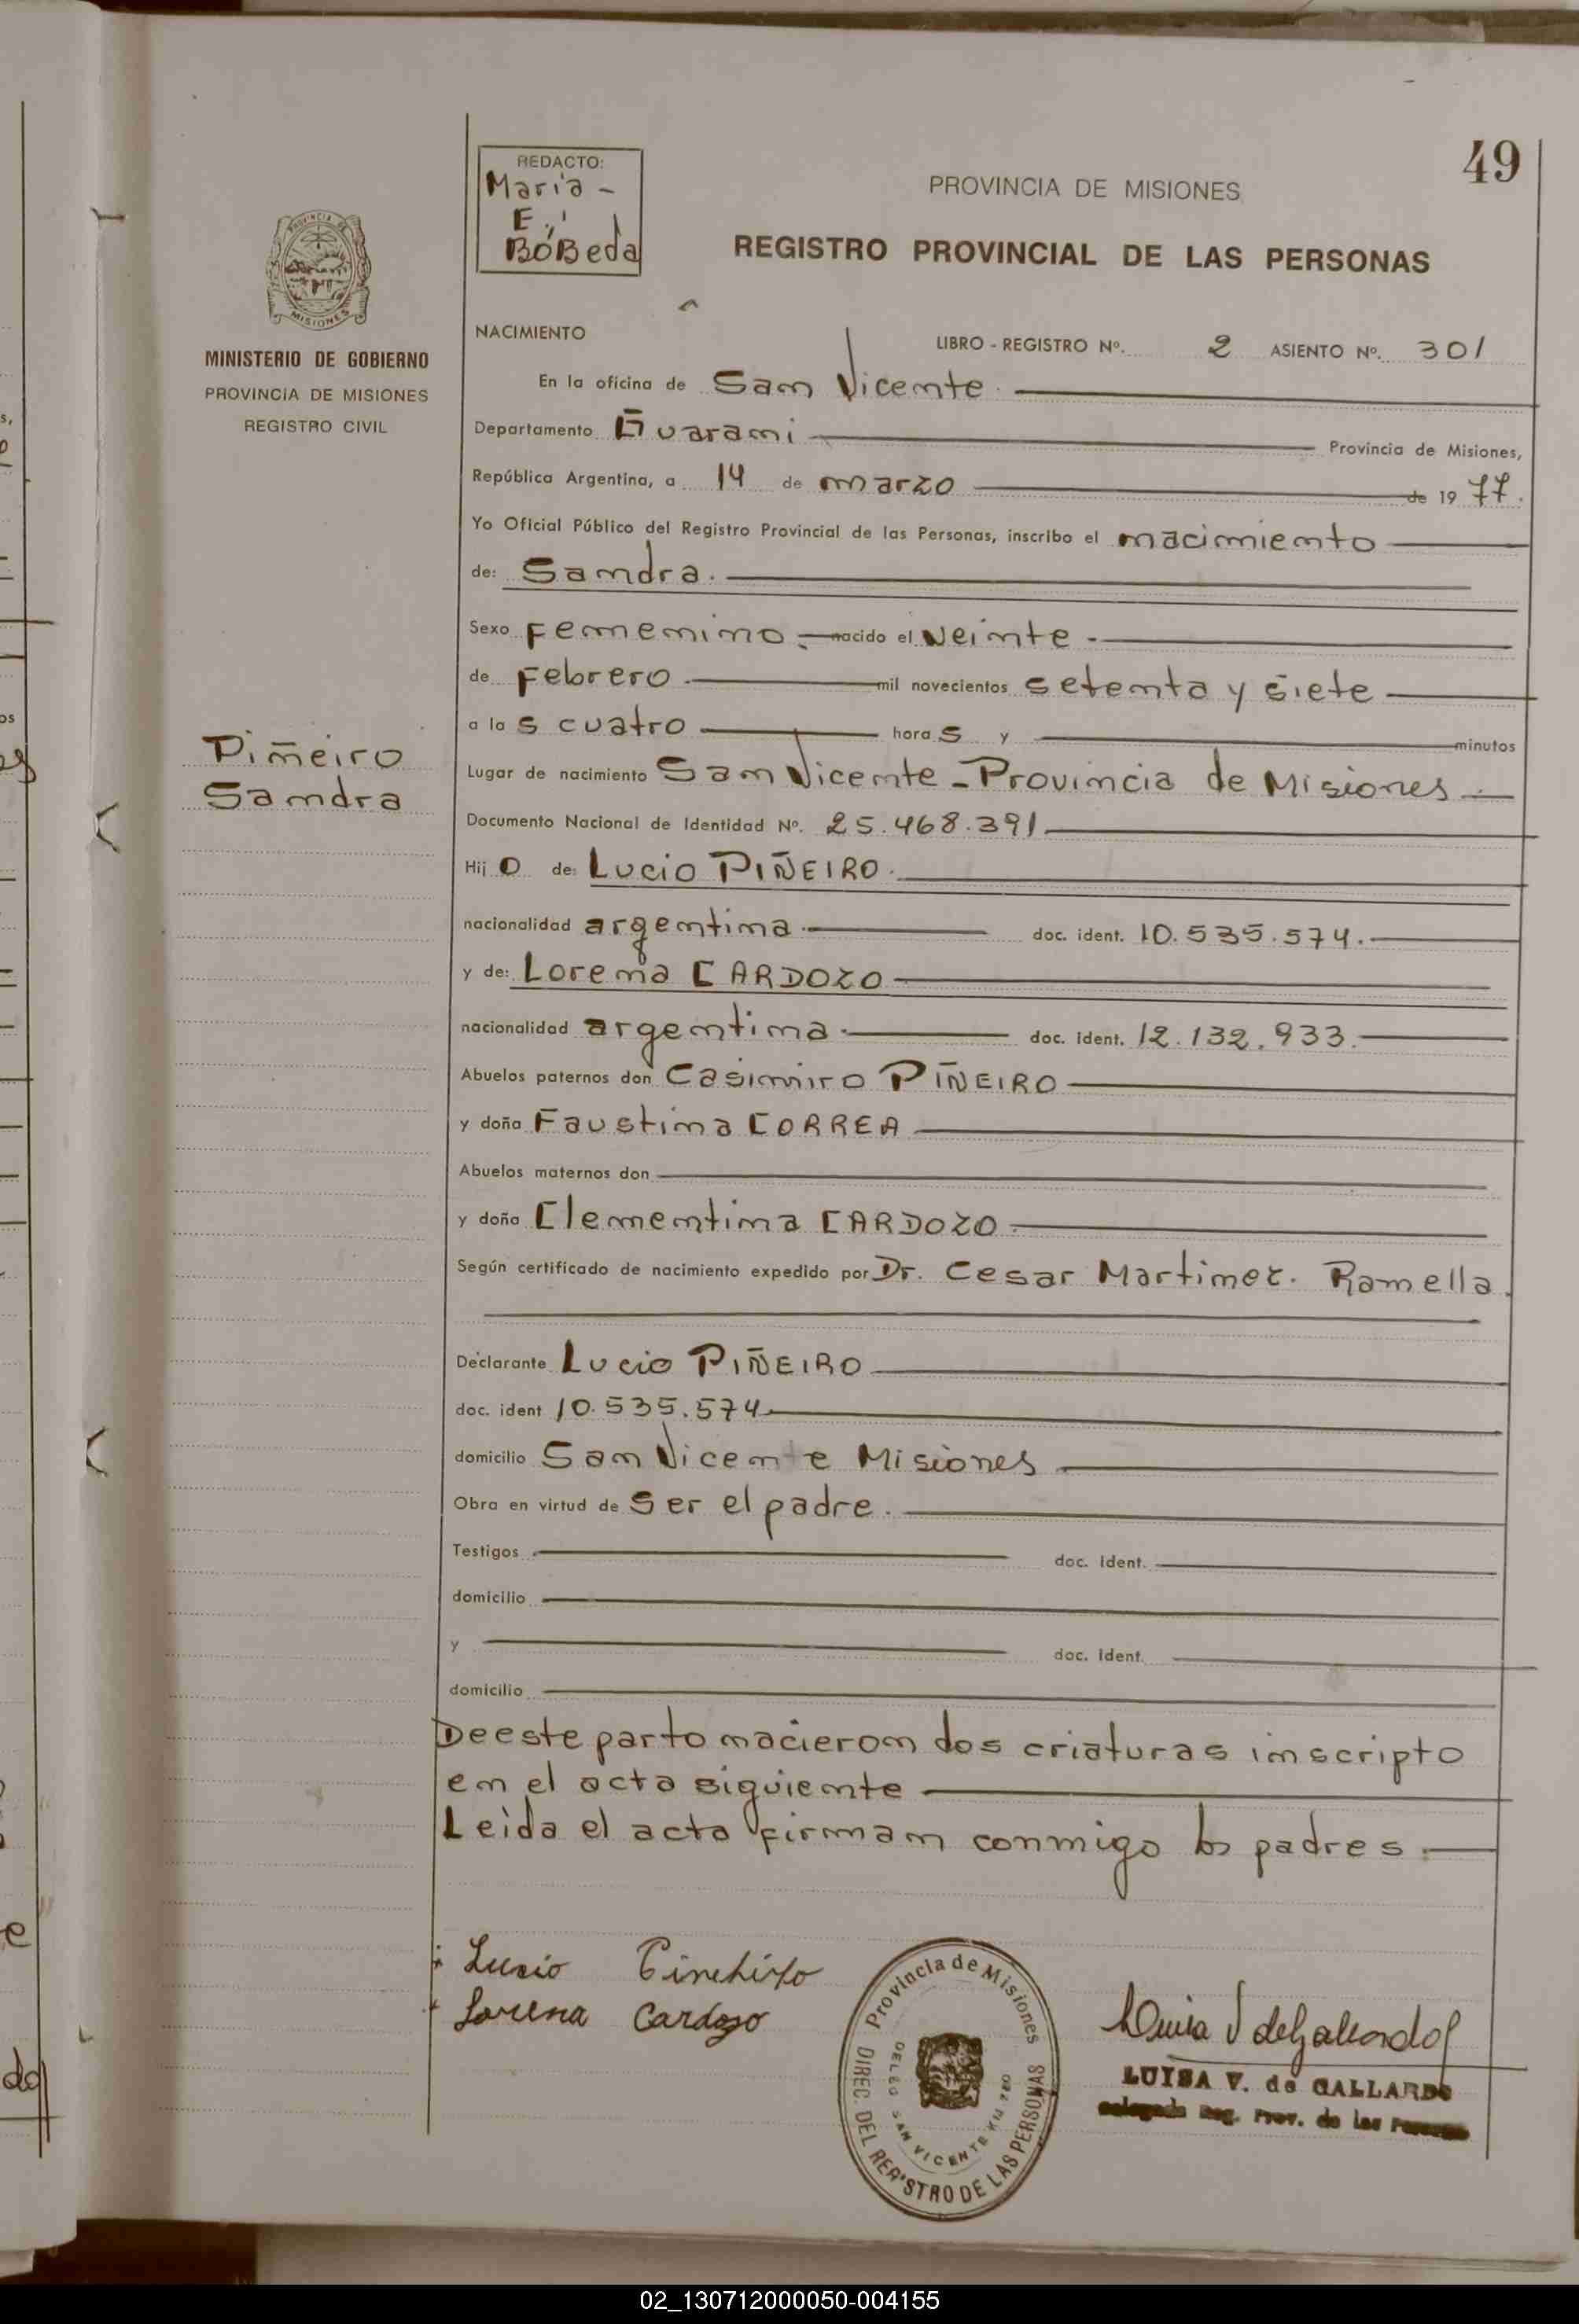 49
REDACTO:
Maria -
E.
BóBeda
PROVINCIA DE MISIONES
REGISTRO PROVINCIAL DE LAS PERSONAS
PROVINCIA DE
MISIONES
MINISTERIO DE GOBIERNO
PROVINCIA DE MISIONES
REGISTRO CIVIL
NACIMIENTO LIBRO - REGISTRO Nº. 2 ASIENTO Nº. 301
En la oficina de San Vicente.
Departamento Guarani Provincia de Misiones,
República Argentina, a 14 de marzo de 1977.
Yo Oficial Público del Registro Provincial de las Personas, inscribo el nacimiento
de: Sandra.
Sexo Femenino. nacido el Veinte.
de Febrero mil novecientos setenta y siete
a las cuatro horas y minutos
Piñeiro
Sandra
Lugar de nacimiento San Vicente - Provincia de Misiones
Documento Nacional de Identidad Nº. 25.468.391
Hijo de: Lucio PIÑEIRO.
nacionalidad argentina doc. ident. 10.535.574.
y de: Lorena CARDOZO
nacionalidad argentina doc. ident. 12.132.933.
Abuelos paternos don Casimiro PIÑEIRO
y doña Faustina CORREA
Abuelos maternos don
y doña Clementina CARDOZO
Según certificado de nacimiento expedido por Dr. Cesar Martinez. Ramella.
Declarante Lucio PIÑEIRO
doc. ident 10.535.574
domicilio San Vicente Misiones
Obra en virtud de Ser el padre.
Testigos doc. ident.
domicilio
y doc. ident.
domicilio
De este parto nacieron dos criaturas inscripto
en el acta siguiente
Leida el acta firman conmigo los padres.
Lucio
Lorena Cardozo
Provincia de Misiones
DIREC. DEL REGISTRO DE LAS PERSONAS
DELEG SAN VICENTE KM 780
Luisa V de Gallardo
LUISA V. de GALLARDO
Delegada Reg. Prov. de las Personas
02_130712000050-004155